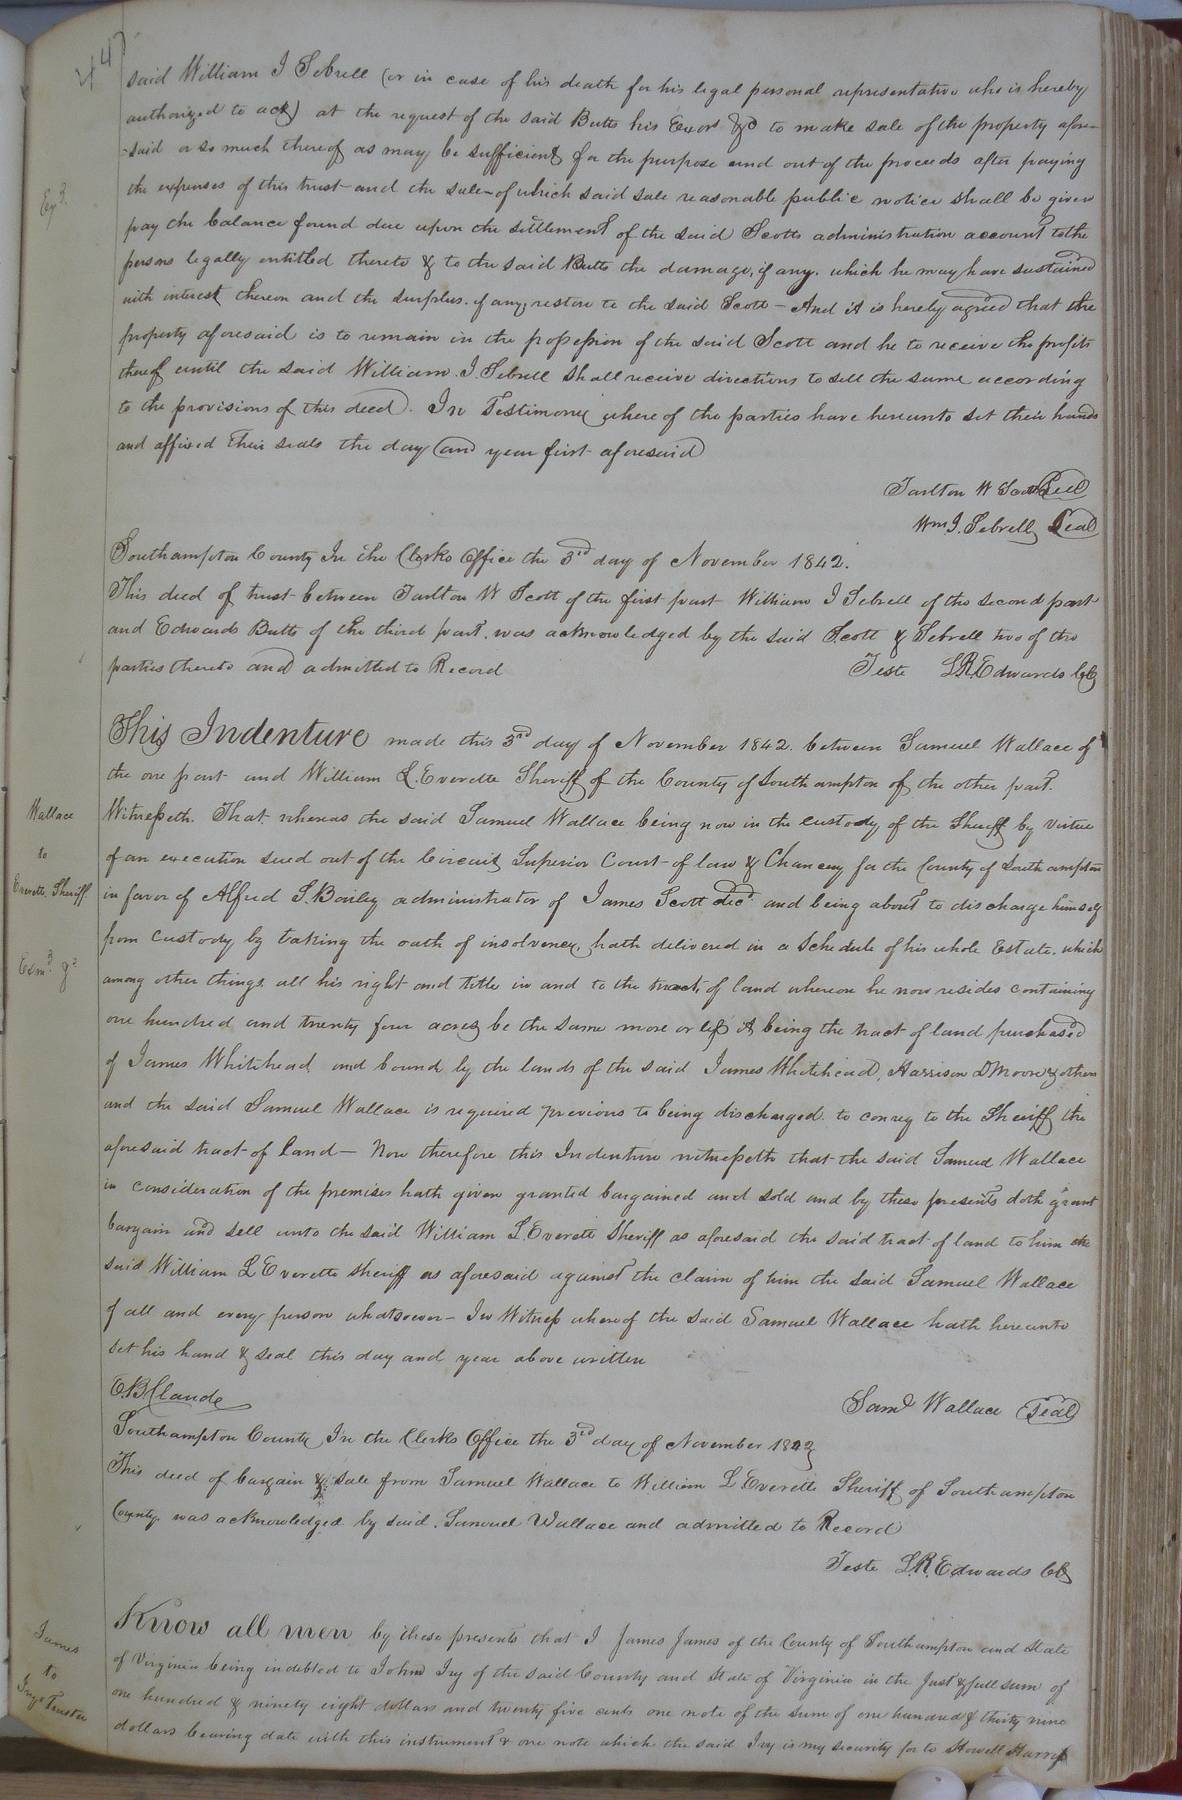 447
said William I Sebrell (or in case of his death for his legal personal representative who is hereby
authorized to act) at the request of the said Butts his Exors &c to make sale of the property afore-
-said or so much thereof as may be sufficient for the purpose and out of the proceeds after paying
Exd.
the expenses of this trust and the sale of which said sale reasonable public notice shall be given
pay the balance found due upon the settlement of the said Scotts administration account to the
persons legally entitled thereto & to the said Butts the damage, if any, which he may have sustained
with interest thereon and the surplus, if any, restore to the said Scott – And it is hereby agreed that the
property aforesaid is to remain in the possession of the said Scott and he to receive the profits
thereof until the said William I. Sebrell shall receive directions to sell the same according
to the provisions of this deed. In Testimony where of the parties have hereunto set their hands
and affixed their seals the day and year first aforesaid
Tarlton W Scott Seal
Wm. I. Sebrell Seal
Southampton County In the Clerks Office the 3rd day of November 1842.
This deed of trust between Tarlton W Scott of the first part William I Sebrell of the second part
and Edwards Butts of the third part, was acknowledged by the said Scott & Sebrell two of the
parties thereto and admitted to Record
Teste L.R. Edwards CC
This Indenture made this 3rd day of November 1842. between Samuel Wallace of
the one part and William L. Everette Sheriff of the County of Southampton of the other part.
Wallace
to
Everette Sheriff.
Witnesseth. That whereas the said Samuel Wallace being now in the custody of the Sheriff by virtue
of an execution sued out of the Circuit Superior Court of law & Chancery for the County of Southampton
in favor of Alfred S. Bailey administrator of James Scott decd and being about to discharge himself
from custody, by taking the oath of insolvency, hath delivered in a Schedule of his whole Estate, which
among other things all his right and title in and to the tract, of land whereon he now resides containing
one hundred and twenty four acres be the same more or less it being the tract of land purchased
of James Whitehead and bound by the lands of the said James Whitehead, Harrison D Moore & others
and the said Samuel Wallace is required previous to being discharged to convey to the Sheriff the
aforesaid tract of land – Now therefore this Indenture witnesseth that the said Samuel Wallace
in consideration of the premises hath given granted bargained and sold and by these presents doth grant
bargain and sell unto the said William L. Everett Sheriff as aforesaid the said tract of land to him the
said William L Everette Sheriff as aforesaid against the claim of him the said Samuel Wallace
of all and every person whatsoever – In Witness whereof the said Samuel Wallace hath hereunto
set his hand & seal this day and year above written
E.B. Claude
Saml Wallace Seal
Southampton County In the Clerks Office the 3rd day of November 1842
This deed of bargain & sale from Samuel Wallace to William L Everette Sheriff of Southampton
County was acknowledged by said Samuel Wallace and admitted to Record
Teste L.R. Edwards CC
James
to
Ivy's Trustee
Know all men by these presents that I James James of the County of Southampton and State
of Virginia being indebted to John Ivy of the said County and State of Virginia in the Just & full sum of
one hundred & ninety eight dollars and twenty five cents one note of the sum of one hundred & thirty nine
dollars bearing date with this instrument & one note which the said Ivy is my security for to Howell Harris